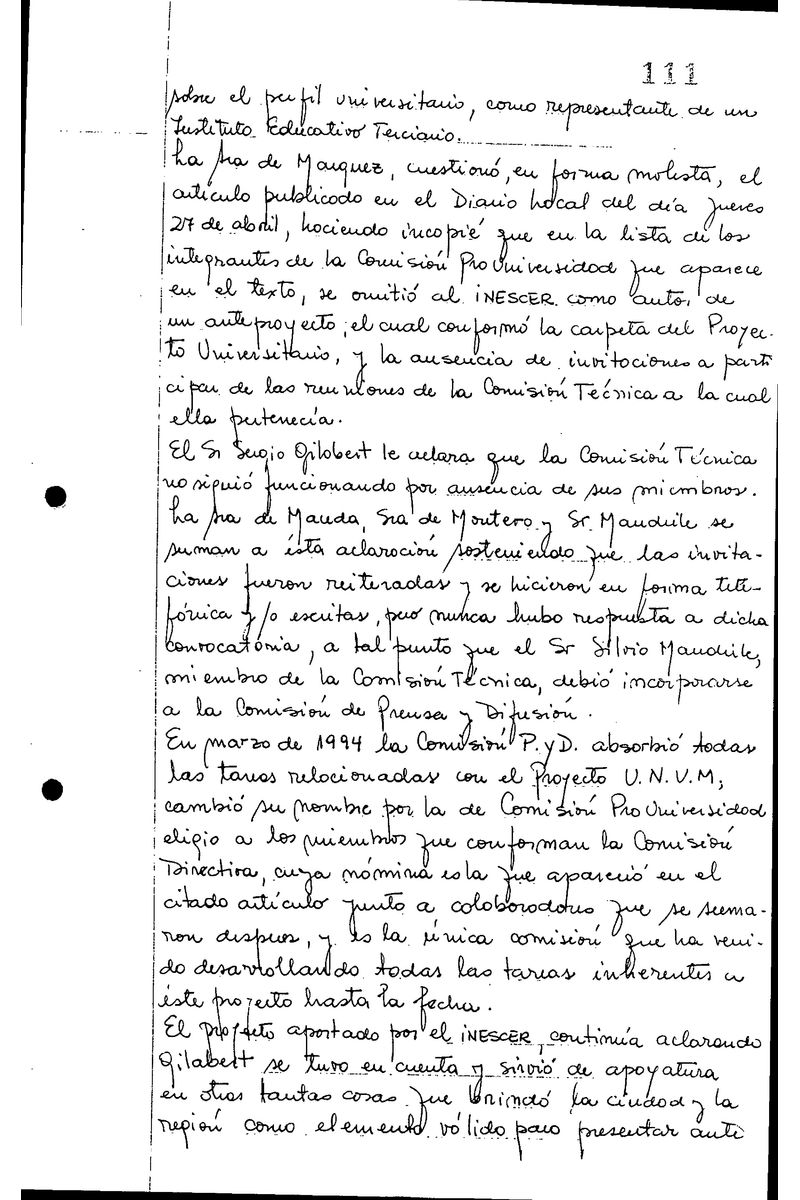 111
sobre el perfil universitario, como representante de un
Instituto Educativo Terciario.
La Sra de Marquez, cuestionó, en forma molesta, el
artículo publicado en el Diario Local del día jueves
27 de abril, haciendo incapié que en la lista de los
integrantes de la Comisión ProUniversidad que aparece
en el texto, se omitió al INESCER como autor de
un anteproyecto, el cual conformó la carpeta del Proyec-
to Universitario, y la ausencia de invitaciones a parti
cipar de las reuniones de la Comisión Técnica a la cual
ella pertenecía.
El Sr Sergio Gilabert le aclara que la Comisión Técnica
no siguió funcionando por ausencia de sus miembros.
La Sra de Mauda, Sra de Montero y Sr. Mandrile se
suman a ésta aclaración sosteniendo que las invita-
ciones fueron reiteradas y se hicieron en forma tele-
fónica y/o escritas, pero nunca hubo respuesta a dicha
convocatoria, a tal punto que el Sr Silvio Mandrile,
miembro de la Comisión Técnica, debió incorporarse
a la Comisión de Prensa y Difusión.
En marzo de 1994 la Comisión P. y D. absorbió todas
las tareas relacionadas con el Proyecto U.N.V.M;
cambió su nombre por la de Comisión ProUniversidad
eligio a los miembros que conforman la Comisión
Directiva, cuya nómina es la que apareció en el
citado artículo junto a colaboradores que se suma-
ron despues, y es la única comisión que ha veni-
do desarrollando todas las tareas inherentes a
éste proyecto hasta la fecha.
El proyecto aportado por el INESCER, continúa aclarando
Gilabert se tuvo en cuenta y sirvió de apoyatura
en otras tantas cosas que brindó la ciudad y la
región como elemento válido para presentar ante